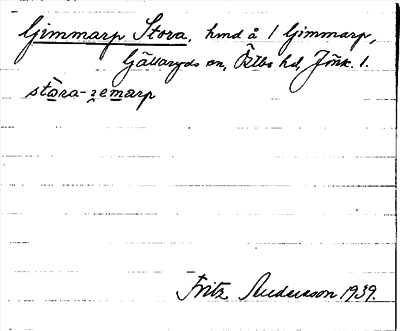 Gimmarp Stora, hmd å 1 Gimmarp,
Gällaryds sn, Östbo hd, Jönk. l.
stòra-ʒemarp
Fritz Andersson 1939.